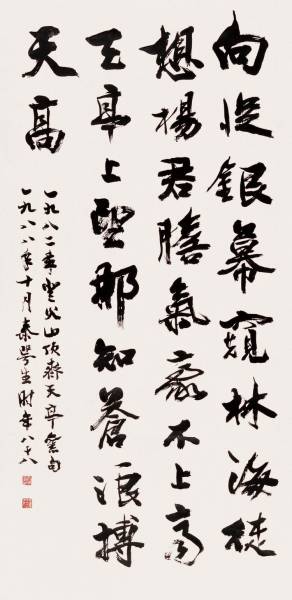 向從銀幕窺林海徒
想楊君膽氣豪不上高
天亭上望那知蒼浪搏
天高
一九八二年登火山頂天亭舊句
一九八八年十月秦萼生時年八十八